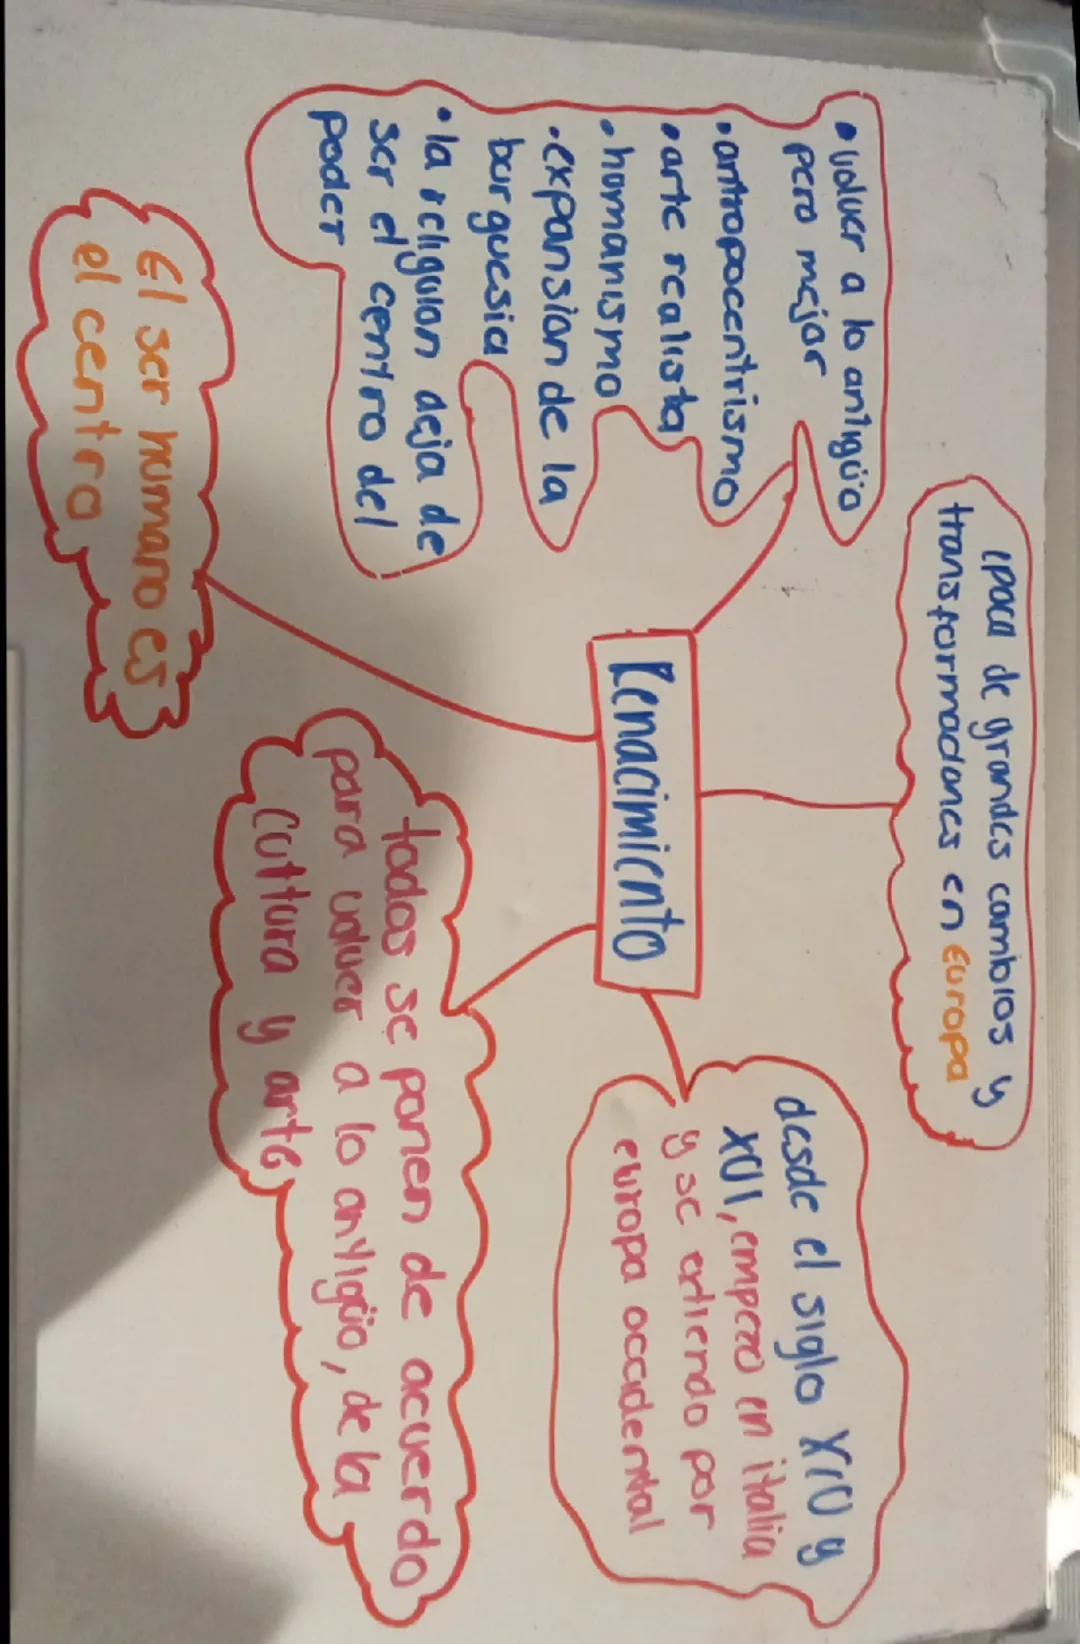 epoca de grandes cambios y
transformaciones en Europa
• volver a lo antigüo
pero mejor
• antropocentrismo
• arte realista
• homanismo
• expansion de la
burguesia
• la religion deja de
ser el centro del
poder
Renacimiento
desde el siglo XIV y
XVI, empezo en italia
y se extiendo por
europa occidental
El ser humano es
el centro
todos se ponen de acuerdo
para volver a lo antigüo, de la
cultura y arte